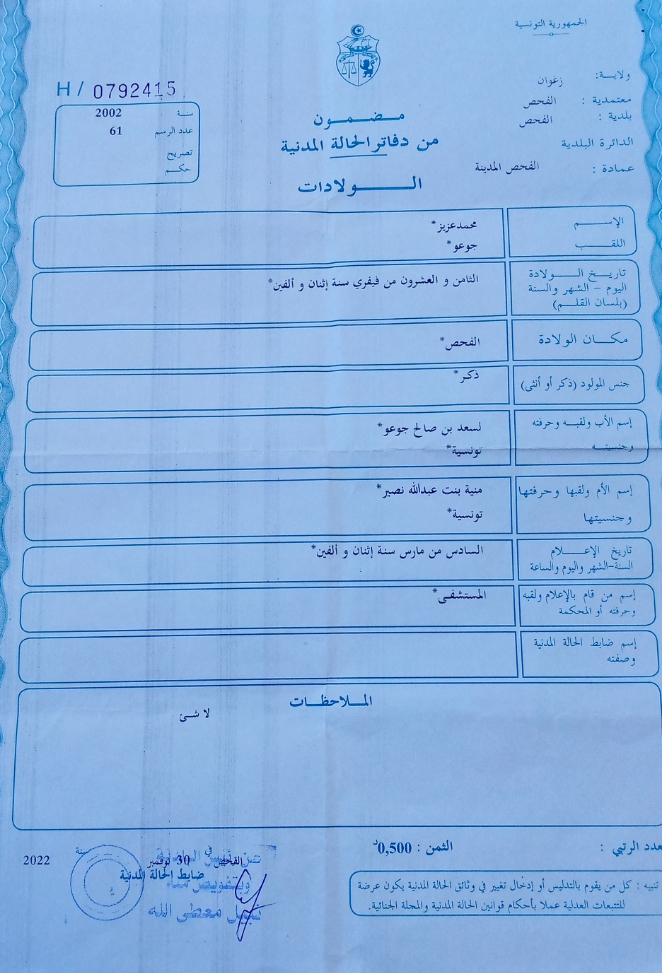 الجمهورية التونسية
ولاية: زغوان
معتمدية : الفحص
بلدية : الفحص
الدائرة البلدية
عمادة : الفحص المدينة
H / 0792415
سنة 2002
عدد الرسم 61
تصريح
حكم
مضمون
من دفاتر الحالة المدنية
الولادات
الإسم محمدعزيز*
اللقب جوعو*
تاريخ الولادة
اليوم - الشهر والسنة
(بلسان القلم)
الثامن و العشرون من فيفري سنة إثنان و ألفين*
مكان الولادة الفحص*
جنس المولود (ذكر أو أنثى) ذكر*
إسم الأب ولقبه وحرفته لسعد بن صالح جوعو*
وجنسيته تونسية*
إسم الأم ولقبها وحرفتها منية بنت عبدالله نصير*
وجنسيتها تونسية*
تاريخ الإعلام السادس من مارس سنة إثنان و ألفين*
السنة-الشهر واليوم والساعة
إسم من قام بالإعلام ولقبه المستشفى*
وحرفته أو المحكمة
إسم ضابط الحالة المدنية
وصفته
الملاحظات
لا شئ
عدد الرتبي :
الثمن : 0,500د
الفحص في 30 نوفمبر سنة 2022
ضابط الحالة المدنية
عن رئيس البلدية
وبتفويض منه
معطى الله
تنبيه : كل من يقوم بالتدليس أو إدخال تغيير في وثائق الحالة المدنية يكون عرضة
للتتبعات العدلية عملا بأحكام قوانين الحالة المدنية والمجلة الجنائية.